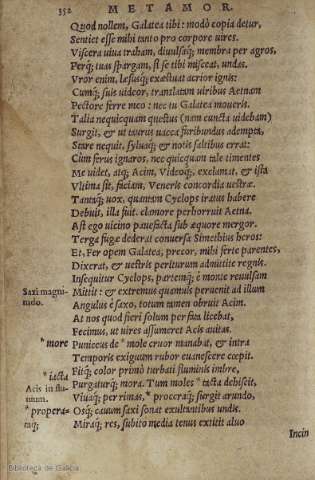 352
METAMOR.
Quod nollem, Galatea tibi: modò copia detur,
Sentiet esse mihi tanto pro corpore uires.
Viscera uiua traham, diuulsaq; membra per agros,
Perq; tuas spargam, si se tibi misceat, undas.
Vror enim, læsusq; exæstuat acrior ignis:
Cumq; suis uideor, translatam uiribus Aetnam
Pectore ferre meo: nec tu Galatea moueris.
Talia nequicquam questus (nam cuncta uidebam)
Surgit, & ut taurus uacca furibundus adempta,
Stare nequit, syluaq; & notis saltibus errat:
Cùm ferus ignaros, nec quicquam tale timentes
Me uidet, atq; Acim, Videoq;, exclamat, & ista
Vltima sit, faciam, Veneris concordia uestræ.
Tantaq; uox, quantam Cyclops iratus habere
Debuit, illa fuit. clamore perhorruit Aetna.
Ast ego uicino pauefacta sub æquore mergor.
Terga fugæ dederat conuersa Simethius heros:
Et, Fer opem Galatea, precor, mihi ferte parentes,
Dixerat, & uestris periturum admittite regnis.
Insequitur Cyclops, partemq; è monte reuulsam
Saxi magni-
tudo.
Mittit: & extremus quamuis peruenit ad illum
Angulus è saxo, totum tamen obruit Acim.
At nos quod fieri solum per fata licebat,
Fecimus, ut uires assumeret Acis auitas.
*more
Puniceus de * mole cruor manabat, & intra
Temporis exiguum rubor euanescere cœpit.
Fitq; color primò turbati fluminis imbre,
*iacta
Acis in flu-
uium.
Purgaturq; mora. Tum moles * tacta dehiscit,
Viuaq; per rimas, * proceraq; surgit arundo,
*propera-
taq;
Osq; cauum saxi sonat exultantibus undis.
Miraq; res, subitò media tenus extitit aluo
Incin
Biblioteca de Galicia